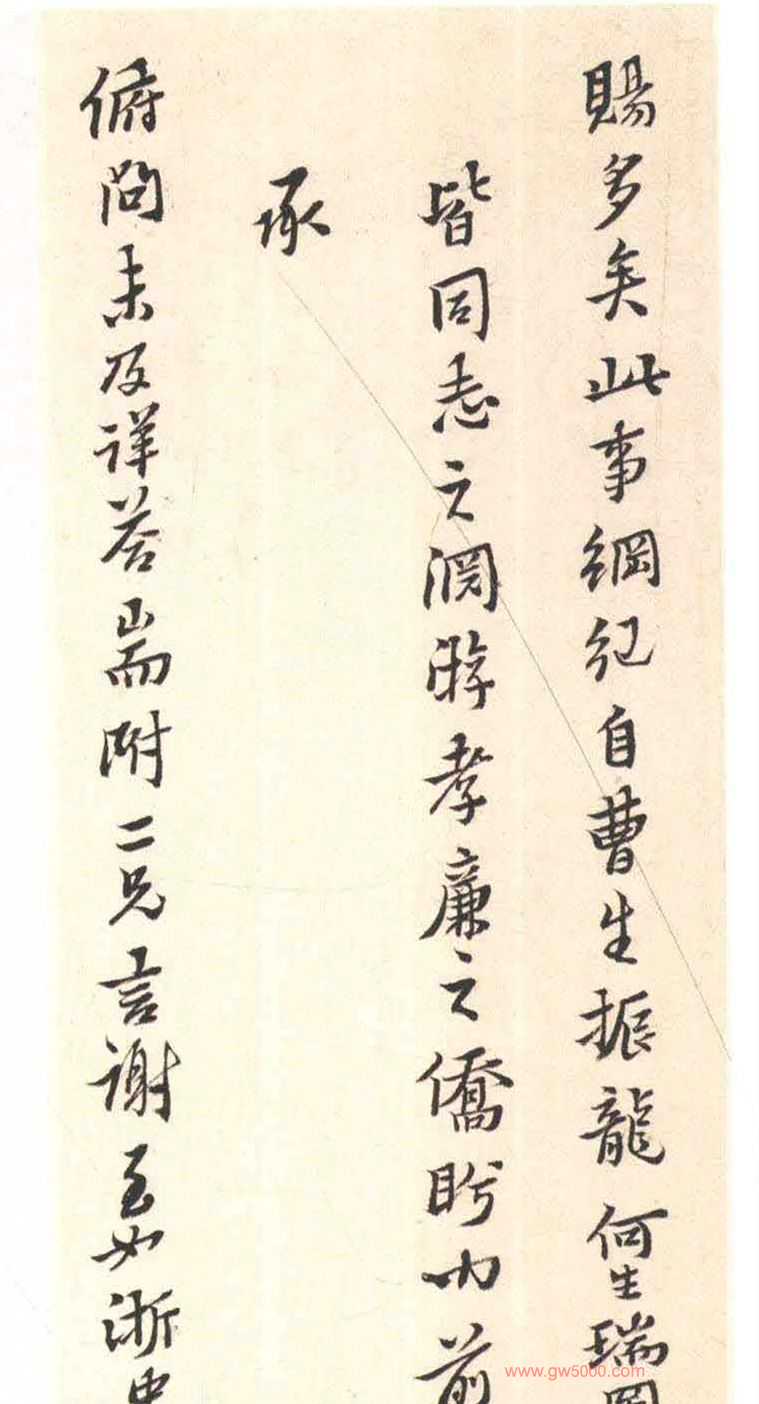 賜多矣此事綱紀自曹生振龍何生瑞圖
皆同志之淵游孝廉之僑盻也前
承
俯問未及详荅耑附二兄言謝至如浙中
www.gw5000.com